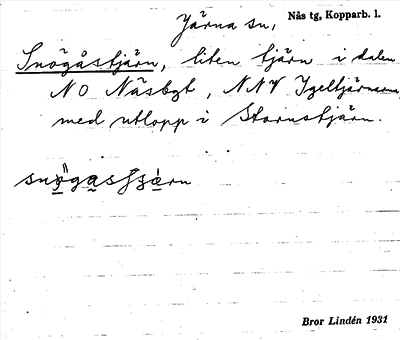 Järna sn, Nås tg, Kopparb. l.
Snögåstjärn, liten tjärn i dalen
NO Näsbgt, NNV Igeltjärnarna,
med utlopp i Stornstjärn.
Bror Lindén 1931